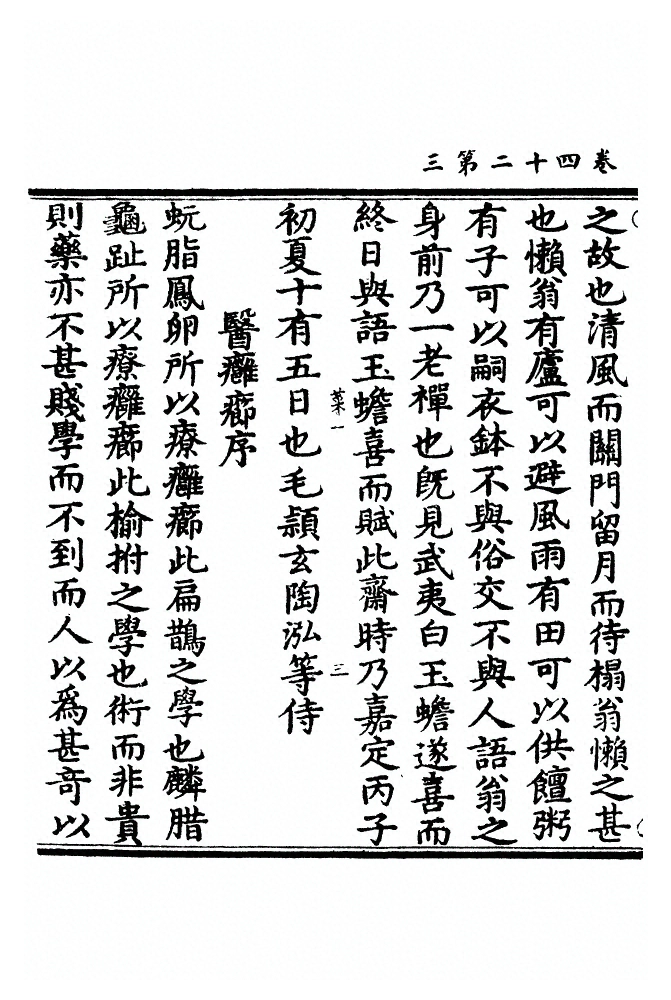 卷四十二第三
之故也清風而關門留月而待榻翁懶之甚
也懶翁有廬可以避風雨有田可以供饘粥
有子可以嗣衣鉢不與俗交不與人語翁之
身前乃一老禪也旣見武夷白玉蟾遂喜而
終日與語玉蟾喜而賦此齋時乃嘉定丙子
菜一
三
初夏十有五日也毛頴玄陶泓等侍
醫癰癤序
蚖脂鳳卵所以療癰癤此扁鵲之學也麟腊
龜趾所以療癰癤此揄拊之學也術而非貴
則藥亦不甚賤學而不到而人以爲甚竒以